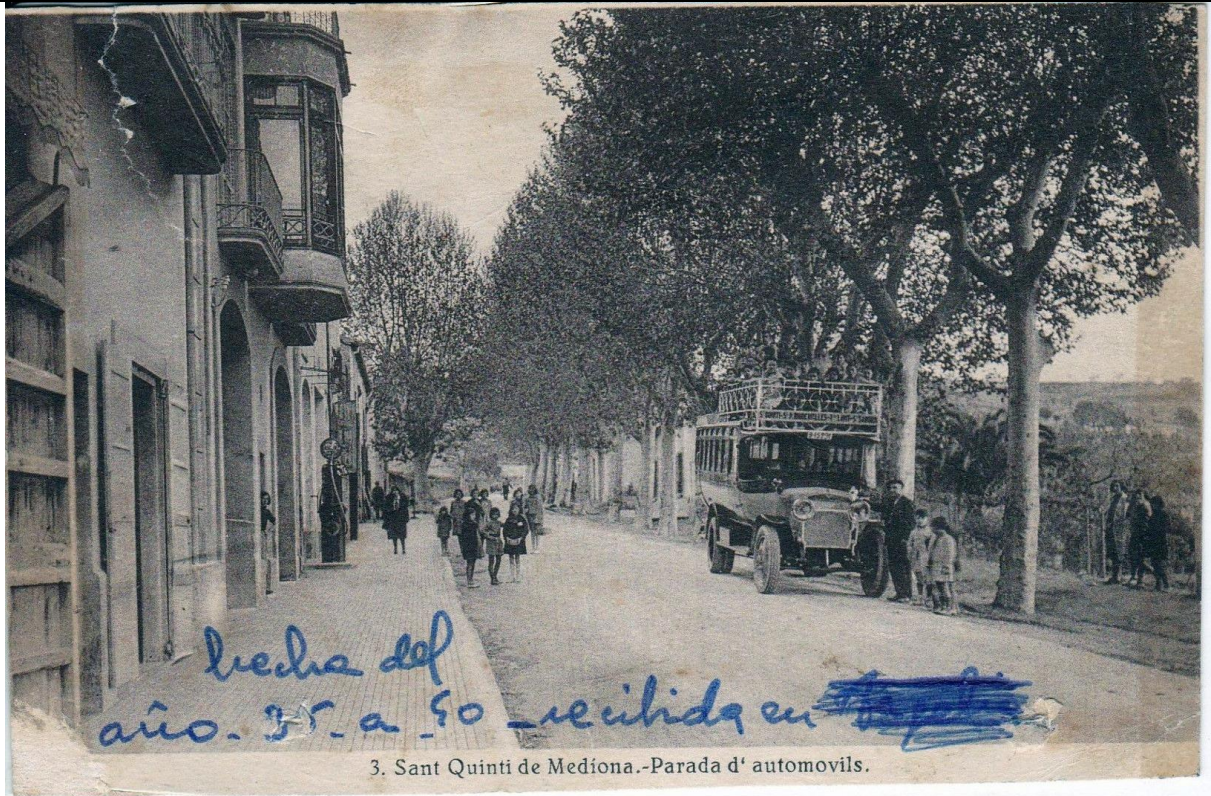 hecha del
año. 35. a. 40 - recibida en
3. Sant Quinti de Mediona.-Parada d' automovils.